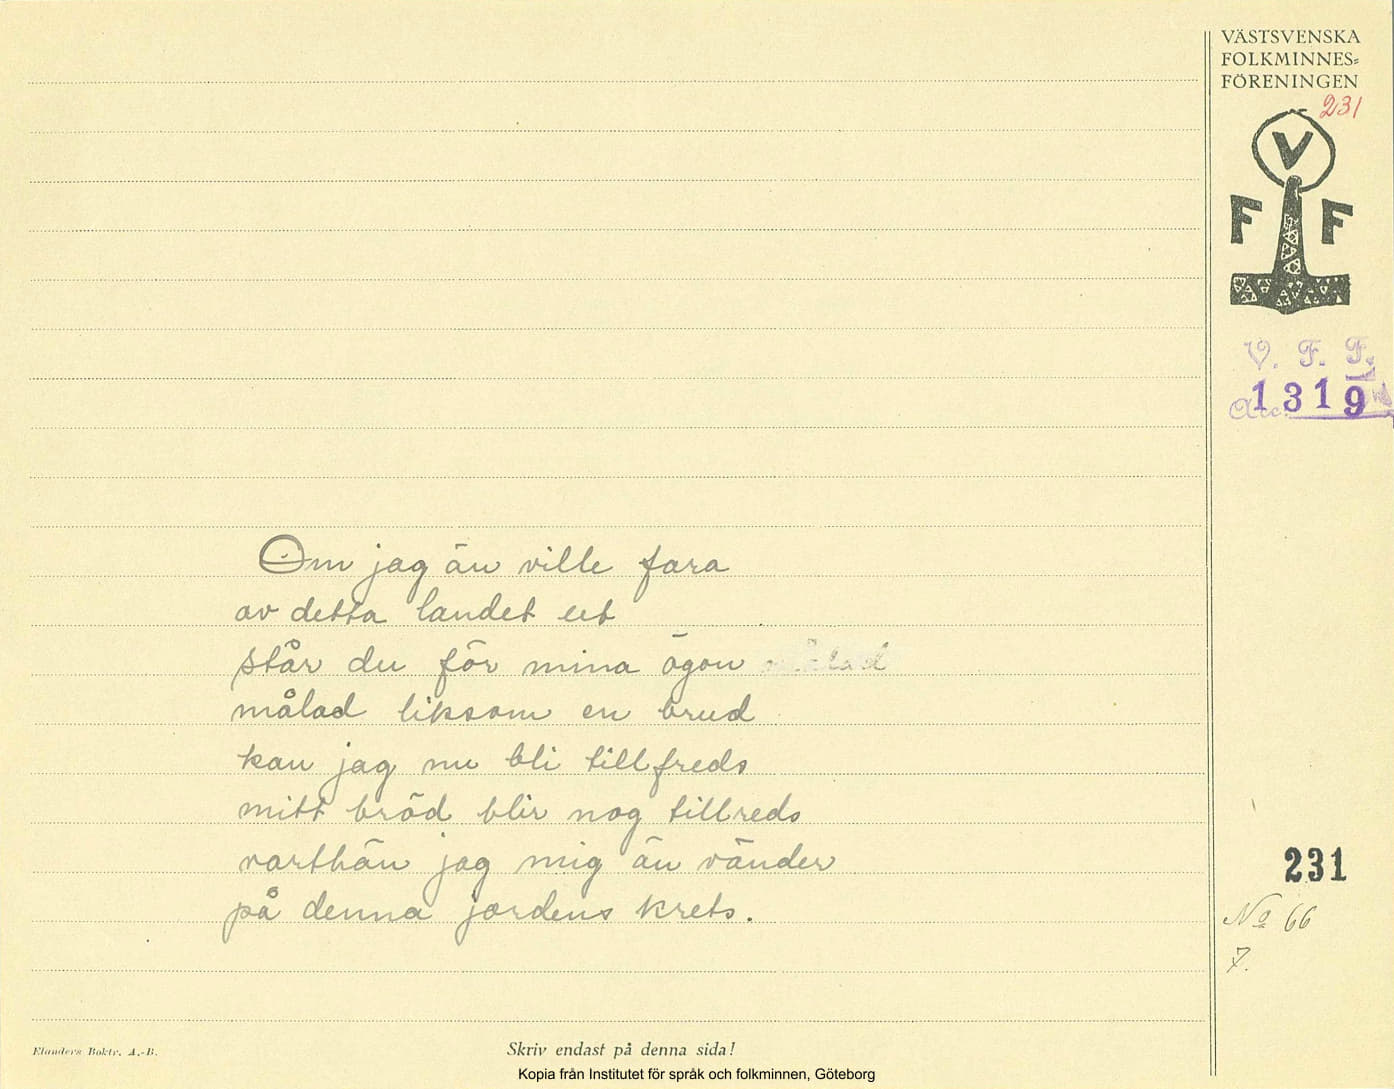 VÄSTSVENSKA
FOLKMINNES=
FÖRENINGEN
231
V
F F
V. F. F.
Acc. 1319
Om jag än ville fara
av detta landet ut
står du för mina ögon målad
målad liksom en brud
kan jag nu bli tillfreds
mitt bröd blir nog tillreds
varthän jag mig än vänder
på denna jordens krets.
231
No 66
7.
Elanders Boktr. A.-B.
Skriv endast på denna sida!
Kopia från Institutet för språk och folkminnen, Göteborg